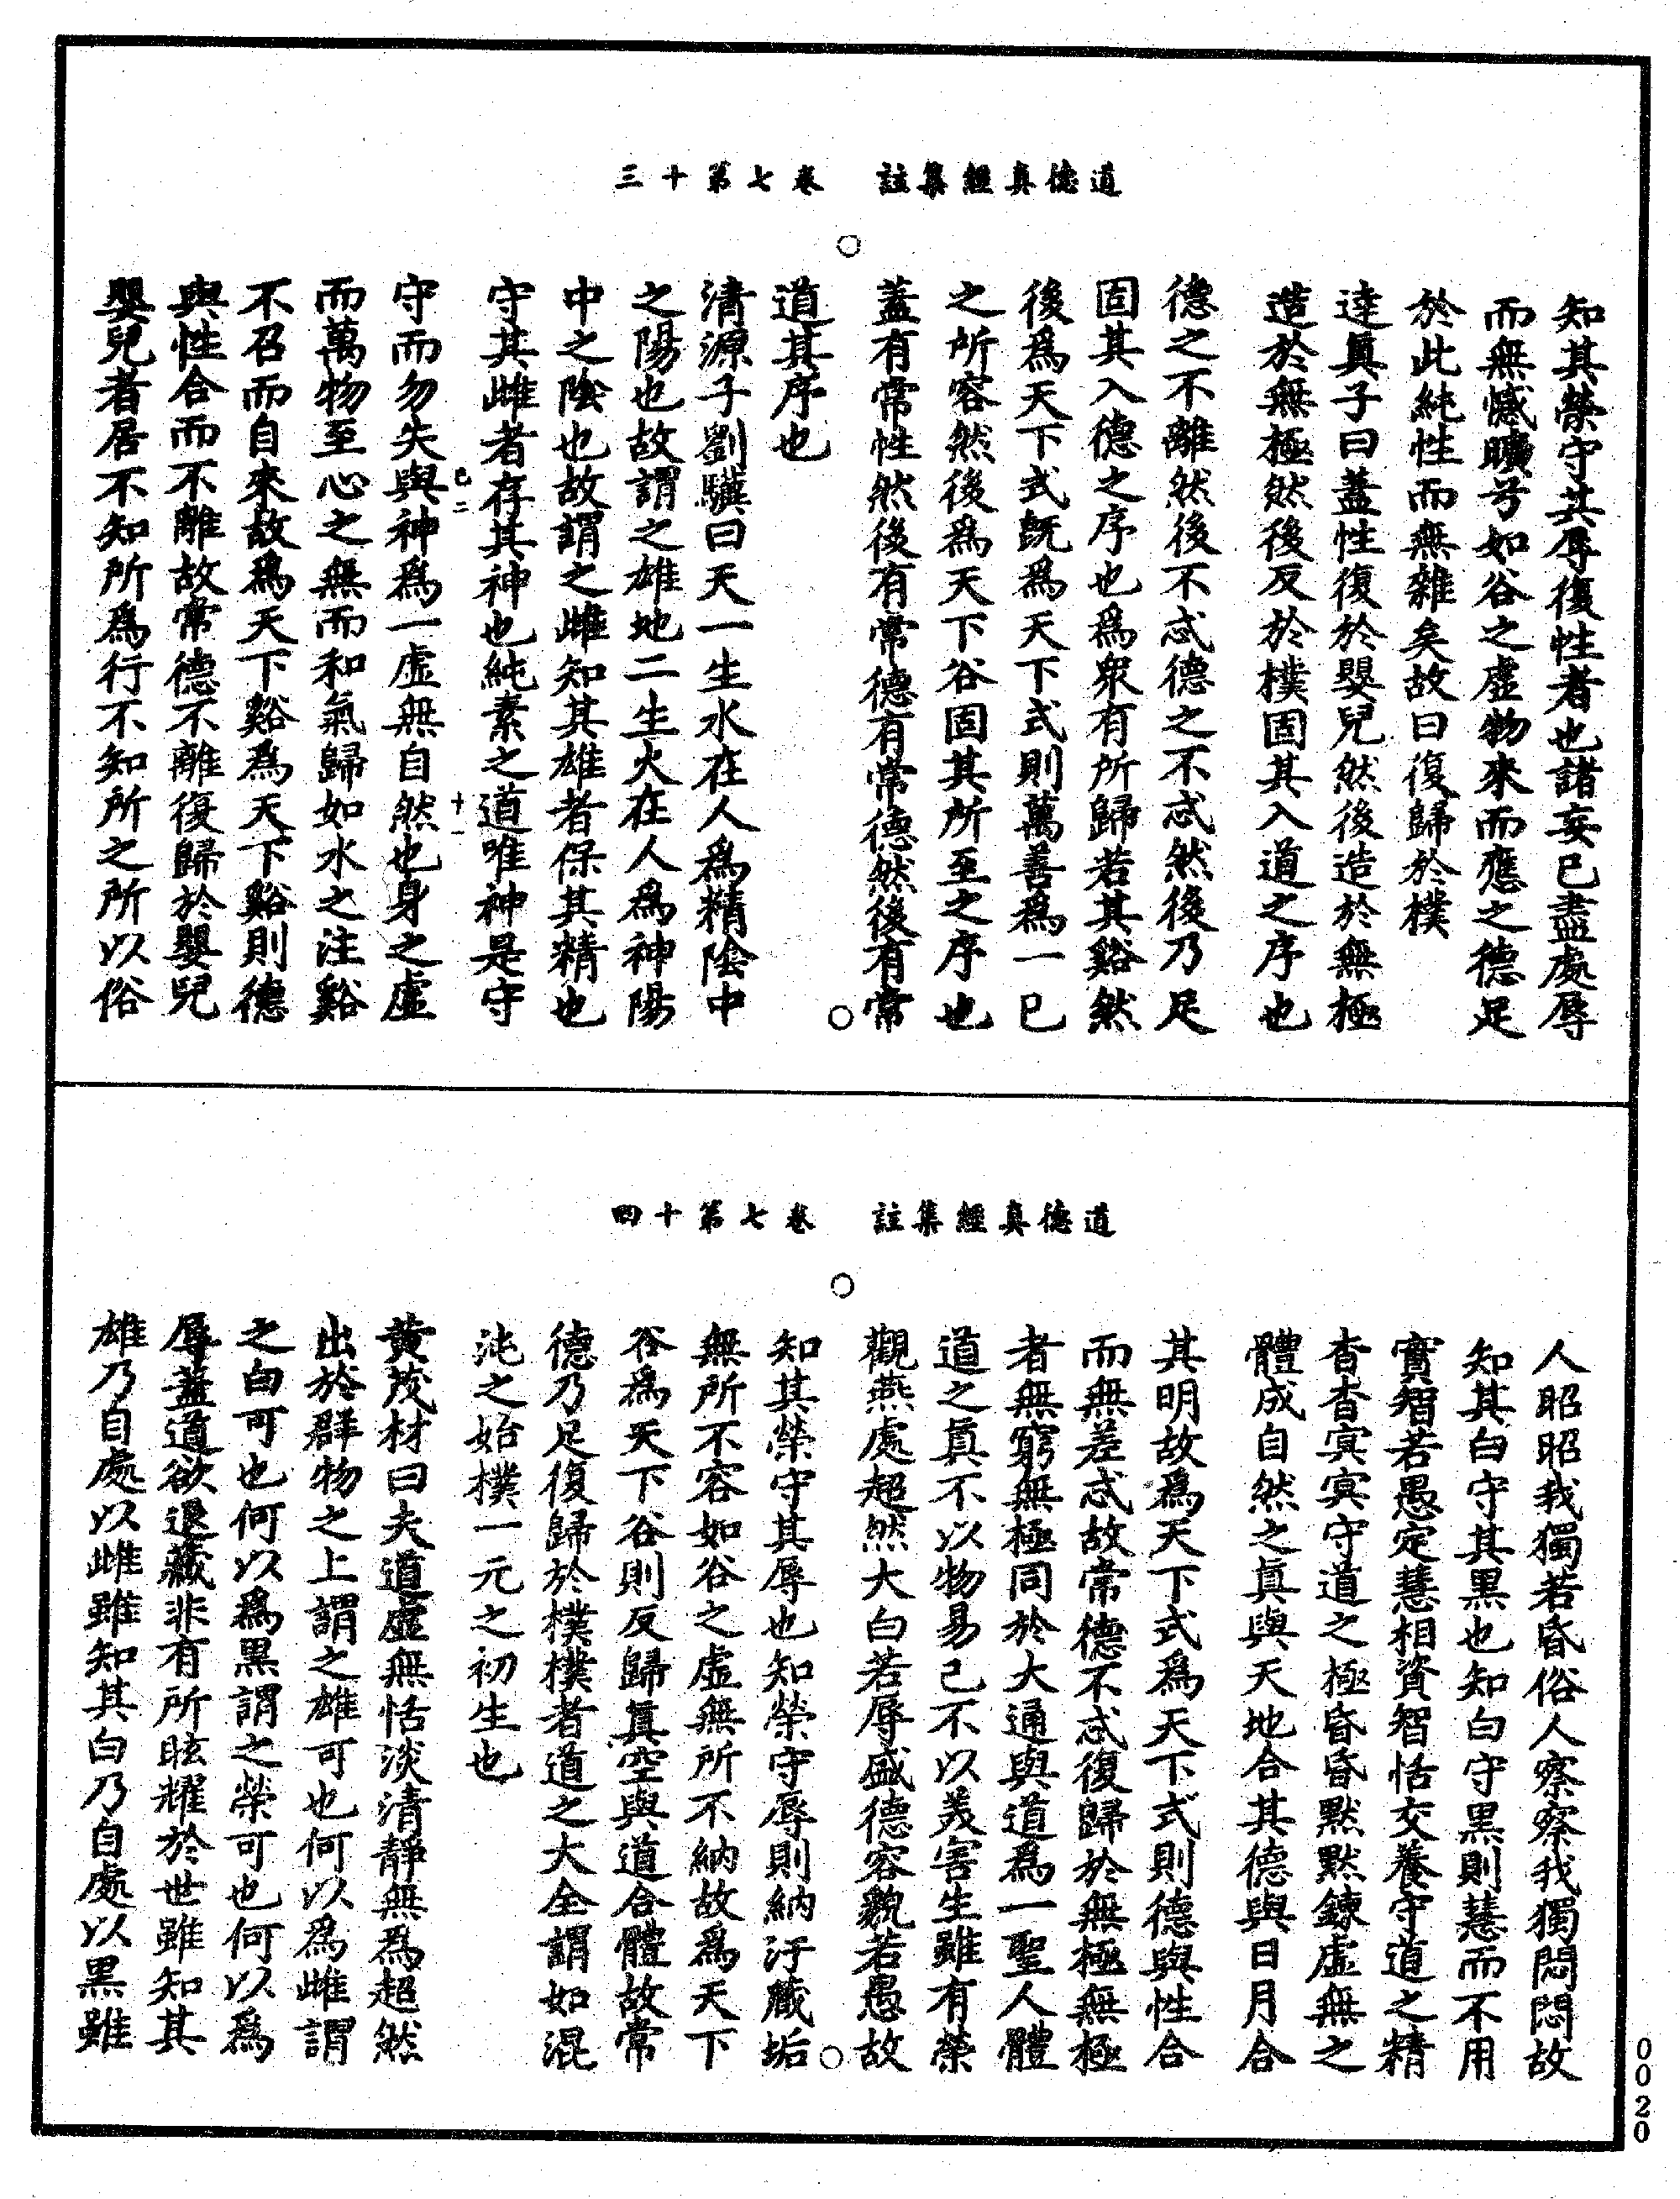 道德真經集註　卷七第十三
知其榮守其辱復性者也諸妄已盡處辱
而無憾曠兮如谷之虛物來而應之德足
於此純性而無雜矣故曰復歸於樸
達真子曰蓋性復於嬰兒然後造於無極
造於無極然後反於樸固其入道之序也
德之不離然後不忒德之不忒然後乃足
固其入德之序也為眾有所歸若其谿然
後為天下式既為天下式則萬善為一已
之所容然後為天下谷固其所至之序也
蓋有常性然後有常德有常德然後有常
道其序也
清源子劉驥曰天一生水在人為精陰中
之陽也故謂之雄地二生火在人為神陽
中之陰也故謂之雌知其雄者保其精也
守其雌者存其神也純素之道唯神是守
己二　十一
守而勿失與神為一虛無自然也身之虛
而萬物至心之無而和氣歸如水之注谿
不召而自來故為天下谿為天下谿則德
與性合而不離故常德不離復歸於嬰兒
嬰兒者居不知所為行不知所之所以俗
道德真經集註　卷七第十四
人昭昭我獨若昏俗人察察我獨悶悶故
知其白守其黑也知白守黑則慧而不用
實智若愚定慧相資智恬交養守道之精
杳杳冥冥守道之極昏昏默默鍊虛無之
體成自然之真與天地合其德與日月合
其明故為天下式為天下式則德與性合
而無差忒故常德不忒復歸於無極無極
者無窮無極同於大通與道為一聖人體
道之真不以物易己不以美害生雖有榮
觀燕處超然大白若辱盛德容貌若愚故
知其榮守其辱也知榮守辱則納汙藏垢
無所不容如谷之虛無所不納故為天下
谷為天下谷則反歸真空與道合體故常
德乃足復歸於樸樸者道之大全謂如混
沌之始樸一元之初生也
黃茂材曰夫道虛無恬淡清靜無為超然
出於群物之上謂之雄可也何以為雌謂
之白可也何以為黑謂之榮可也何以為
辱蓋道欲退藏非有所眩耀於世雖知其
雄乃自處以雌雖知其白乃自處以黑雖
0020